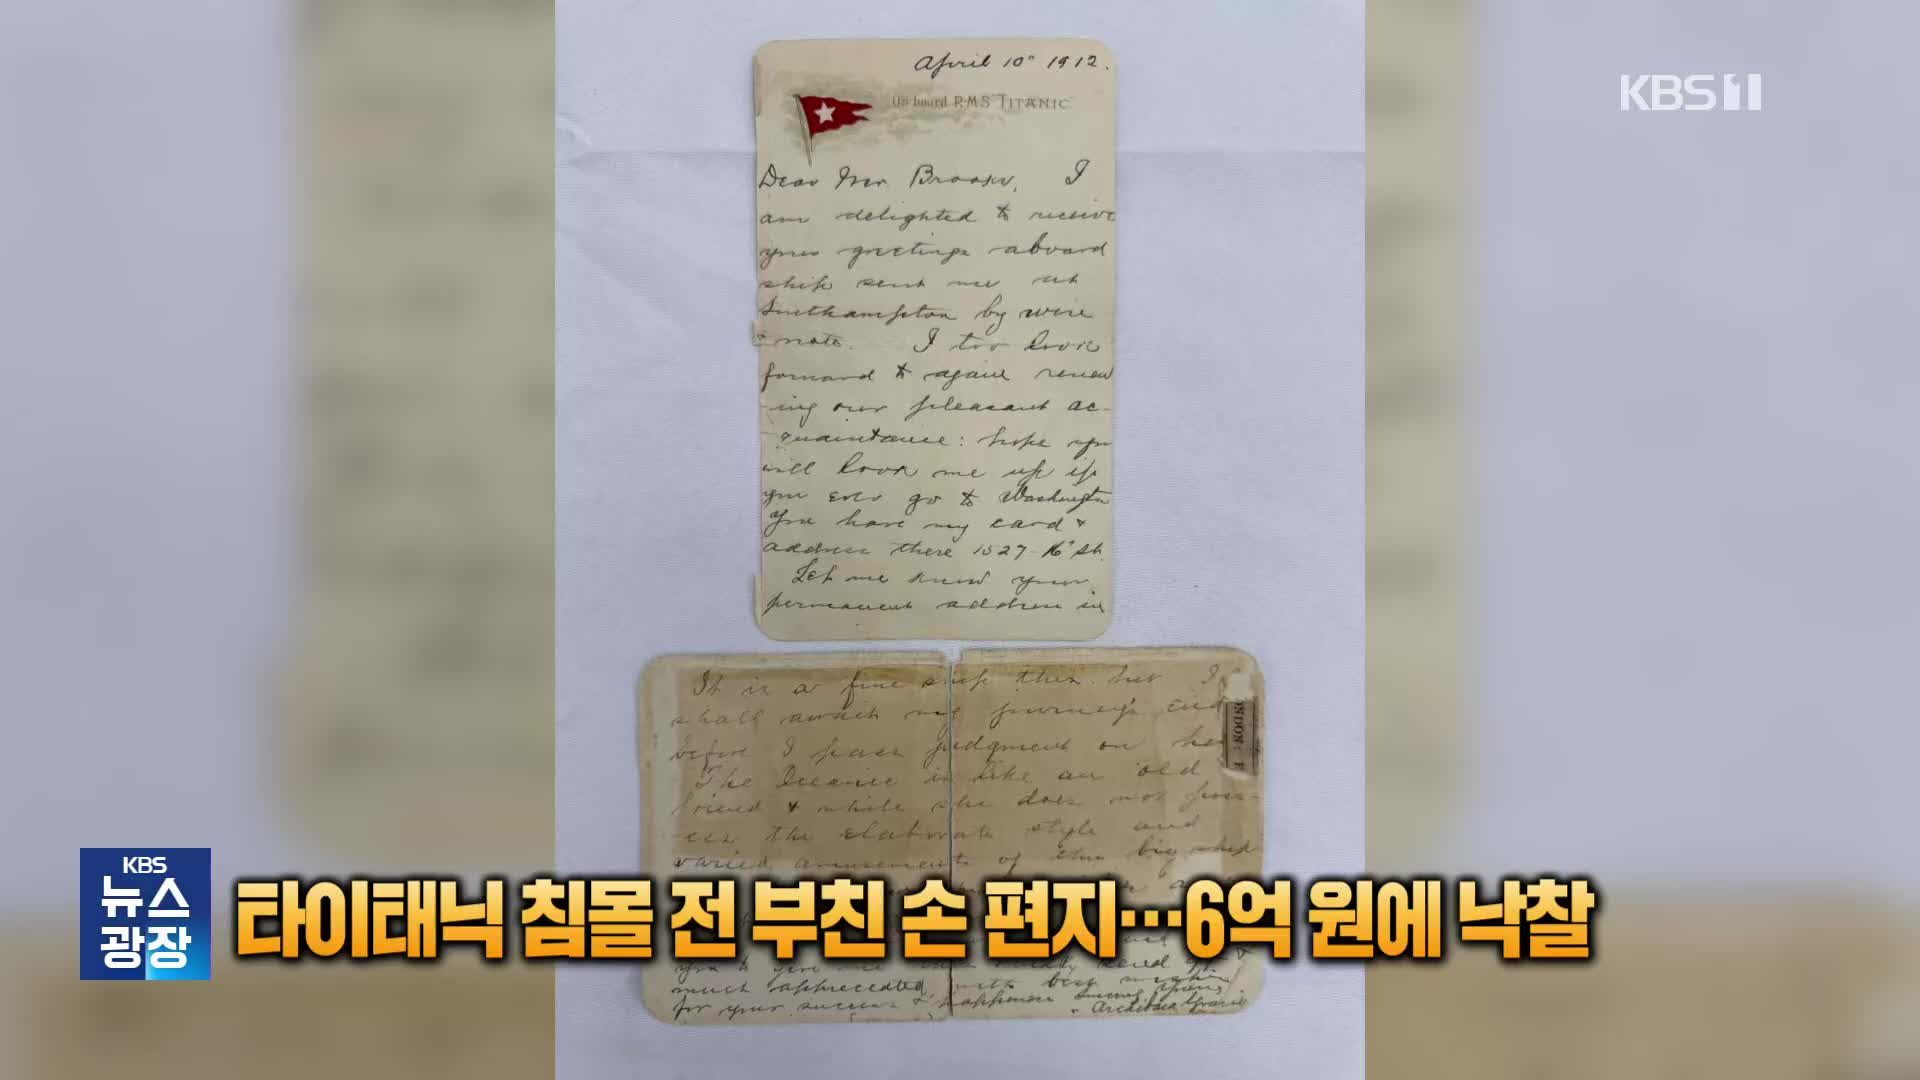 KBS 1
April 10" 1912.
On board RMS "TITANIC"
Dear Mr. I
am delighted to receive
your greetings aboard
ship sent me at
Southampton by wire
& note. I too look
forward to again renew
ing our pleasant ac-
quaintance: hope you
will look me up if
you ever go to Washington
You have my card &
address there 1527-16" St.
Let me know your
permanent address in
It is a fine ship but I
shall await my journey's end
before I pass judgment on her
The Oceanic is like an old
friend & while she does not poss-
ess the elaborate style and
varied amusements of this big ship
ONDON: F
KBS
뉴스
광장
타이태닉 침몰 전 부친 손 편지…6억 원에 낙찰
much appreciated with best wishes
for your success & happiness
Archibald Gracie